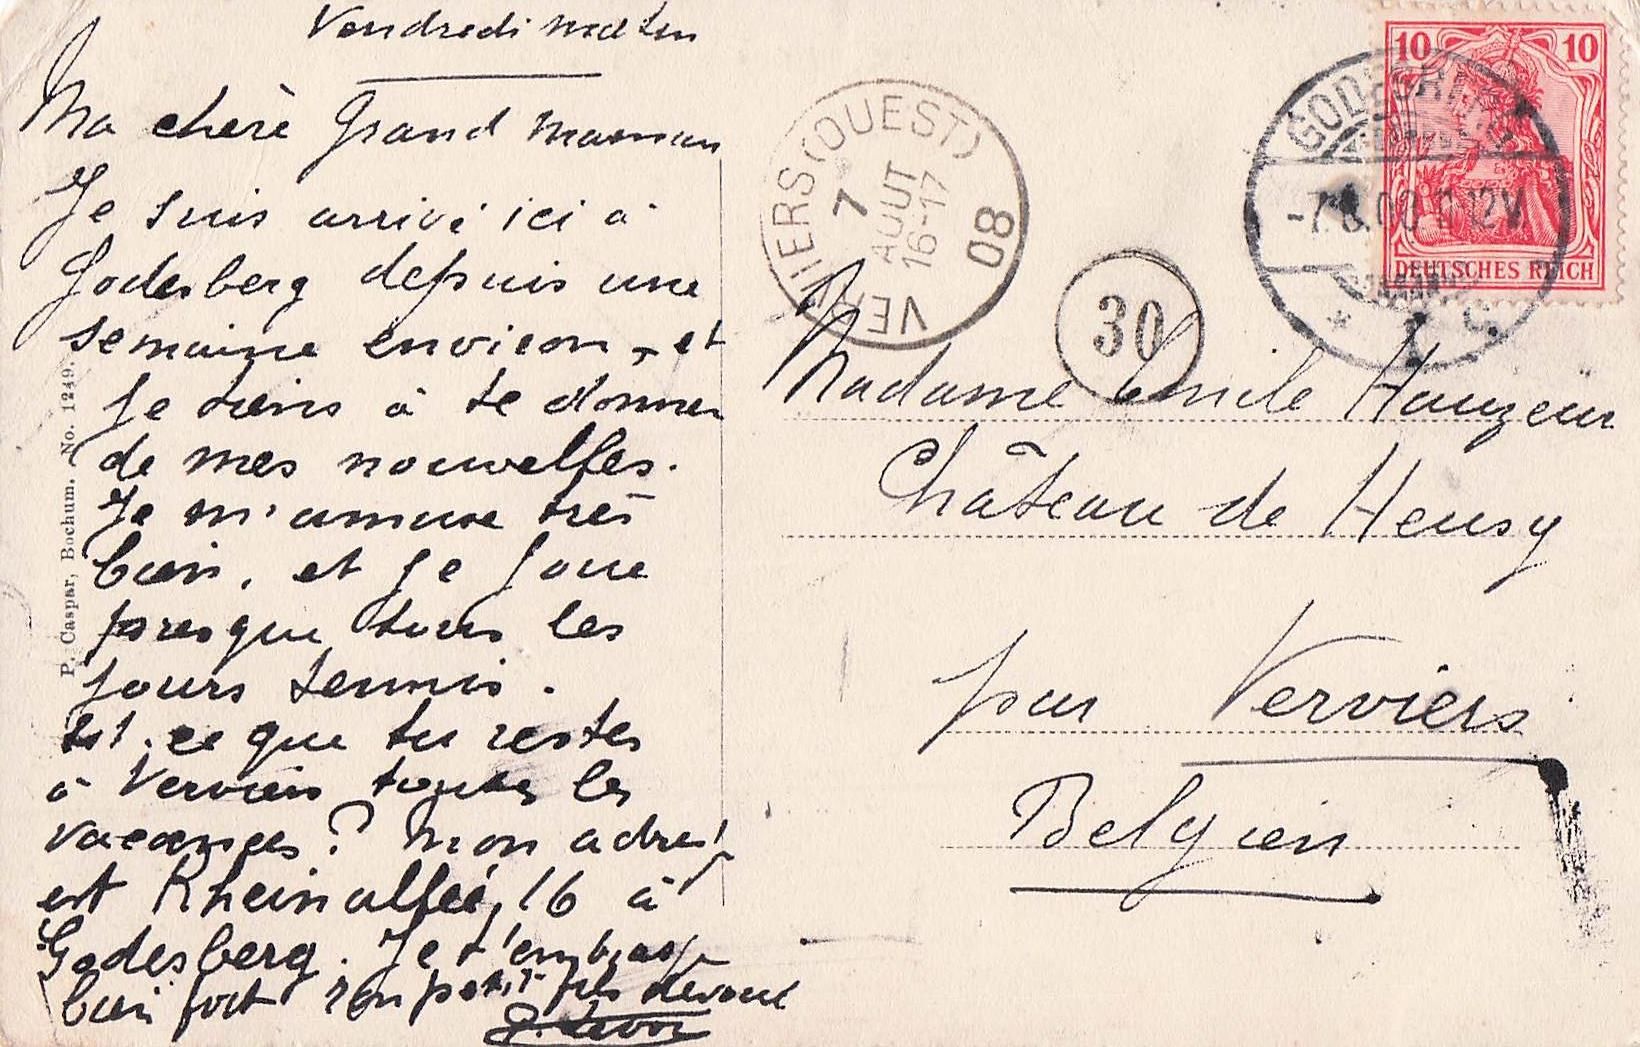 Vendredi matin
Ma chère Grand Maman
Je suis arrivé ici à
Godesberg depuis une
semaine environ, et
je tiens à te donner
de mes nouvelles.
Je m'amuse très
bien, et je joue
presque tous les
jours tennis.
Est-ce que tu restes
à Verviers toutes les
vacances? Mon adres
est Rheinallée, 16 à
Godesberg. Je t'embrasse
bien fort ton petit-fils dévoué
P. Caspar, Bochum. No. 1249.
VERVIERS (OUEST)
7
AOUT
16-17
08
30
GODESBERG
-7.8.08 11-12V
* 1 c.
10 10
DEUTSCHES REICH
Madame Emile Hauzeur
Château de Heusy
par Verviers
Belgien